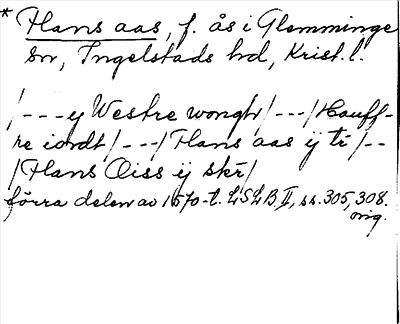 * Hans aas, f. ås i Glemminge
sn, Ingelstads hd, Krist. l.
/---y Westre wongh/---/Hauff-
re iordt/---/Hans aas ij tr/--
/Hans Oiss ij skr/
förra delen av 1570-t. LSLB. II, ss. 305, 308.
orig.